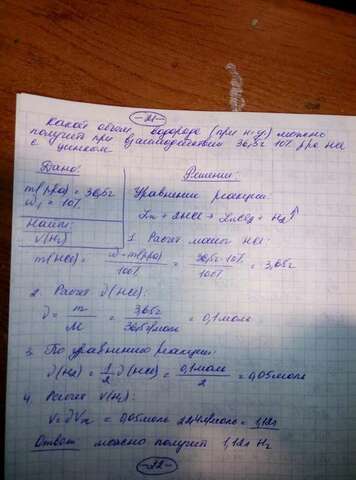 -21-
Какой объем водорода (при н.у.) можно
получить при взаимодействии 36,5г 10% р-ра HCl
с цинком
Дано:
Решение:
m(р-ра) = 36,5г
ω = 10%
Уравнение реакции:
Zn + 2HCl → ZnCl2 + H2↑
Найти:
V(H2)
1. Расчет массы HCl:
m(HCl) = ω · m(р-ра) / 100% = 36,5г · 10% / 100% = 3,65г
2. Расчет ν(HCl):
ν = m / M = 3,65г / 36,5г/моль = 0,1моль
3. По уравнению реакции:
ν(H2) = 1/2 ν(HCl) = 0,1моль / 2 = 0,05моль
4. Расчет V(H2):
V = ν · Vm = 0,05моль · 22,4л/моль = 1,12л
Ответ: можно получить 1,12л H2
-22-